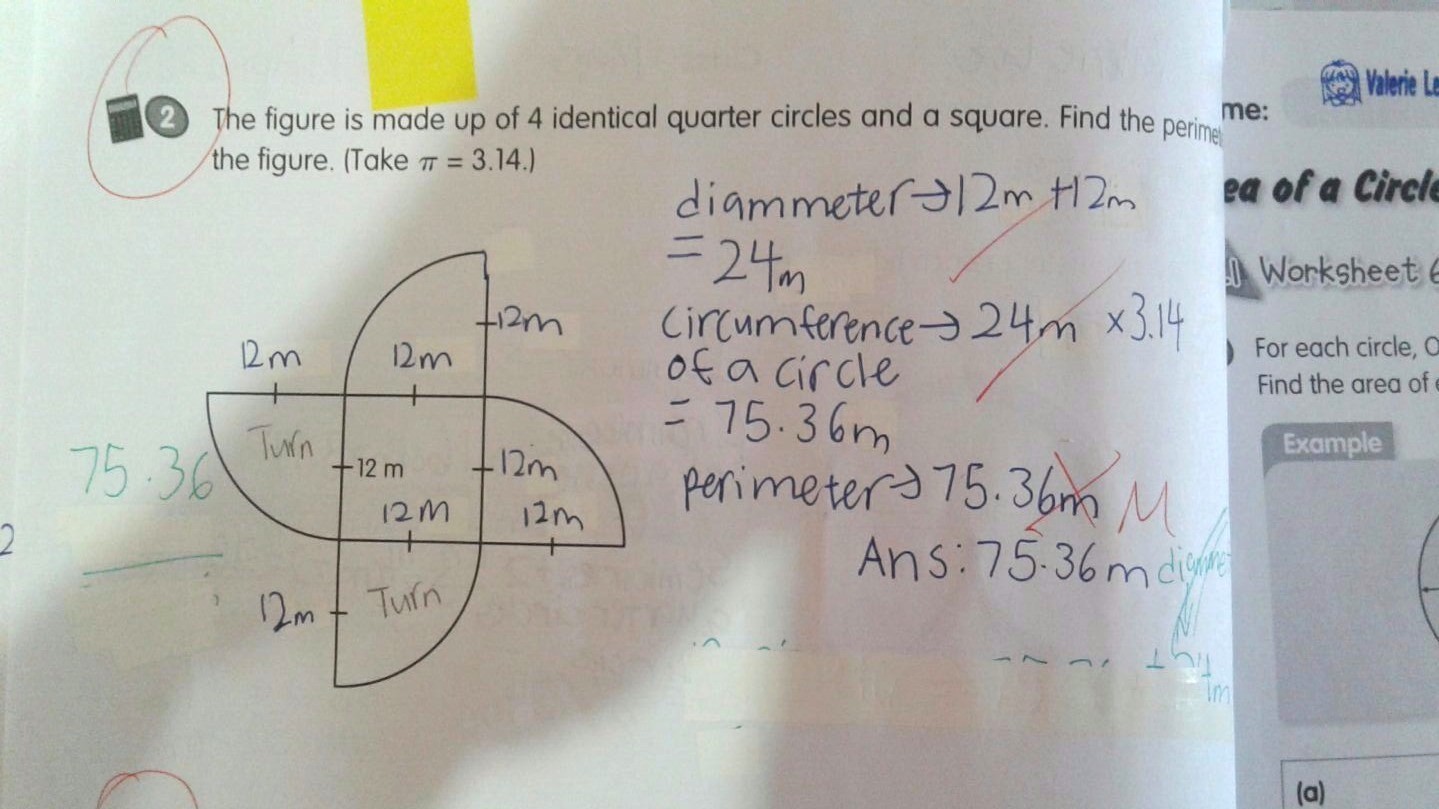 2 The figure is made up of 4 identical quarter circles and a square. Find the
the figure. (Take π = 3.14.)
diammeter→12m +12m
= 24m
circumference→ 24m ×3.14
of a circle
= 75.36m
perimeter→ 75.36m M
Ans: 75.36m
12m
12m
12m
Turn
12 m
12m
12m
12m
12m
Turn
75.36
2
me:
Valerie
of a Circle
Worksheet
For each circle,
Find the area of
Example
(a)